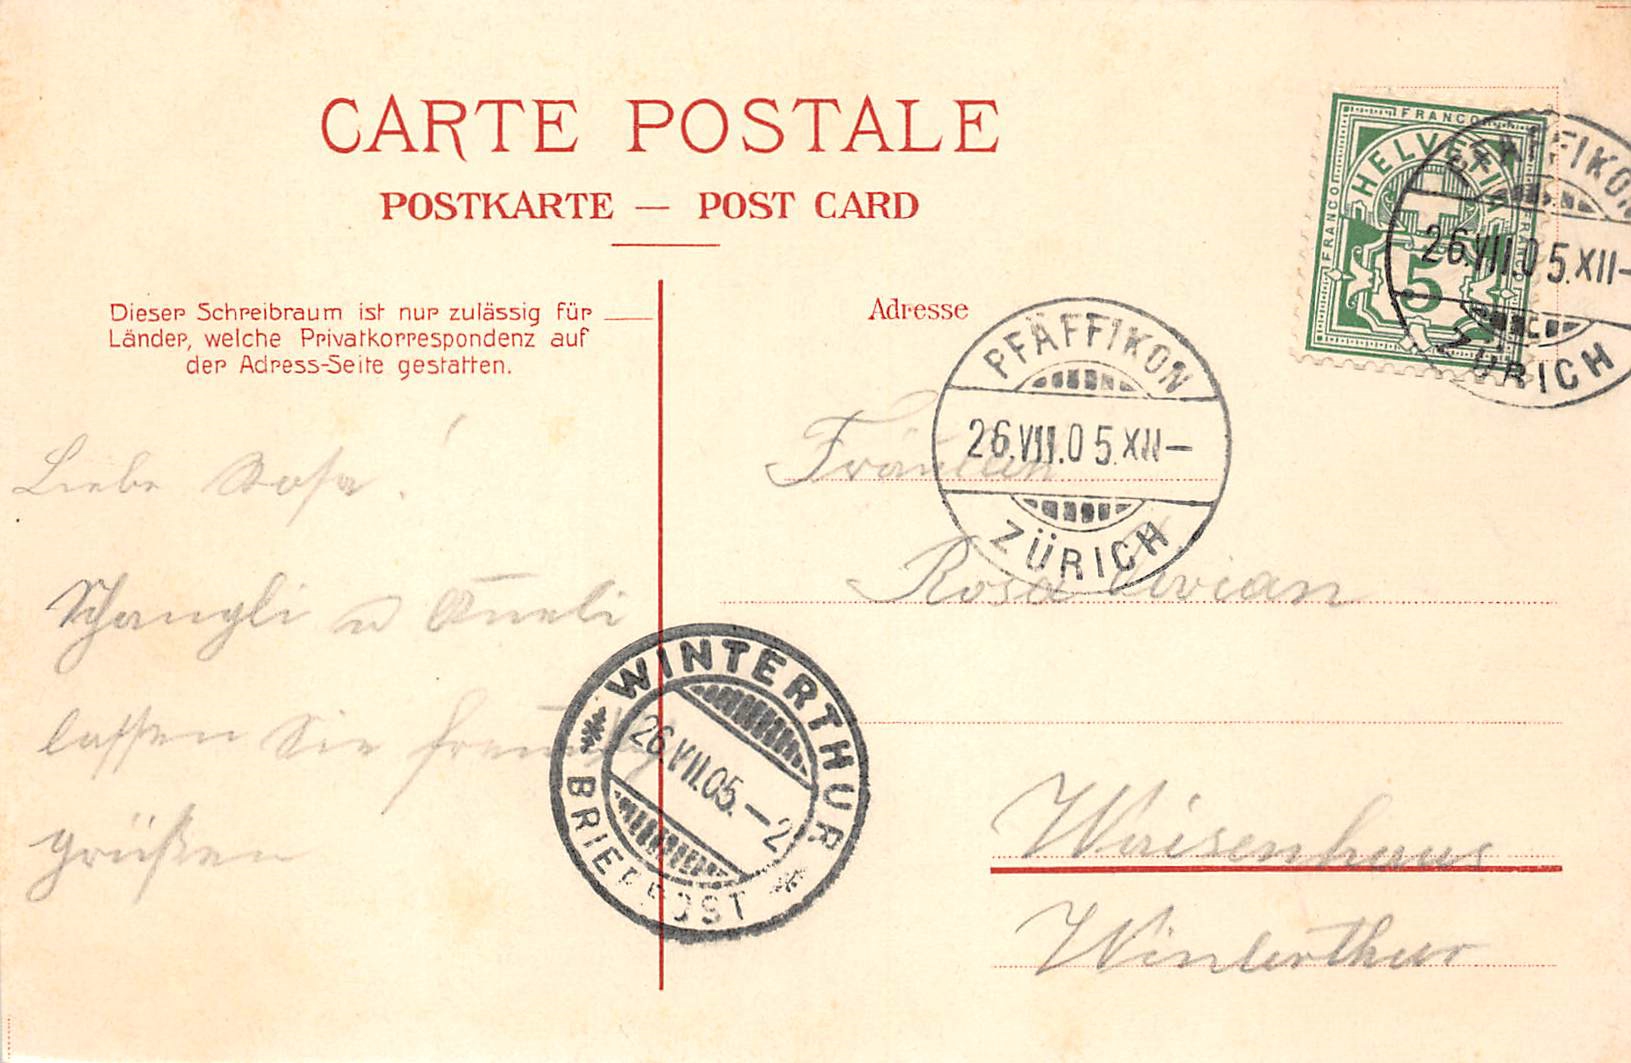 CARTE POSTALE
POSTKARTE — POST CARD
Dieser Schreibraum ist nur zulässig für
Länder, welche Privatkorrespondenz auf
der Adress-Seite gestatten.
Adresse
FRANCO
FRANCO
FRANCO
HELVETIA
5
PFÄFFIKON
26.VII.05.XII—
ZÜRICH
PFÄFFIKON
26.VII.05.XII—
ZÜRICH
Liebe Rosa!
Schangli u
lassen Sie
grüßen
WINTERTHUR
26.VII.05.—2
BRIEFPOST
Fräulein
Rosa
Waisenhaus
Winterthur